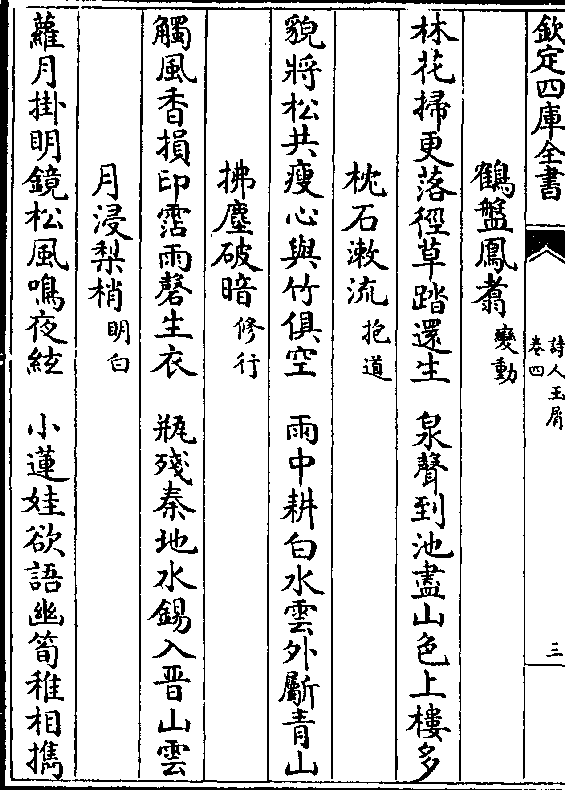 欽定四庫全書
詩人玉屑
卷四
三
鶴盤鳳翥 變動
林花掃更落徑草踏還生 泉聲到池盡山色上樓多
枕石漱流 抱道
貌將松共瘦心與竹俱空 雨中耕白水雲外斸青山
拂塵破暗 修行
觸風香損印霑雨磬生衣 瓶殘秦地水錫入晉山雲
月浸梨梢 明白
蘿月掛明鏡松風鳴夜絃 小蓮娃欲語幽筍稚相擕